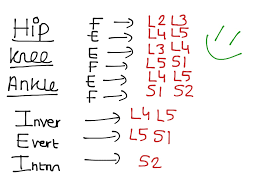 Hip F → L2 L3
E → L4 L5
Knee E → L3 L4
F → L5 S1
Ankle E → L4 L5
F → S1 S2
Inver → L4 L5
Evert → L5 S1
Intrin → S2